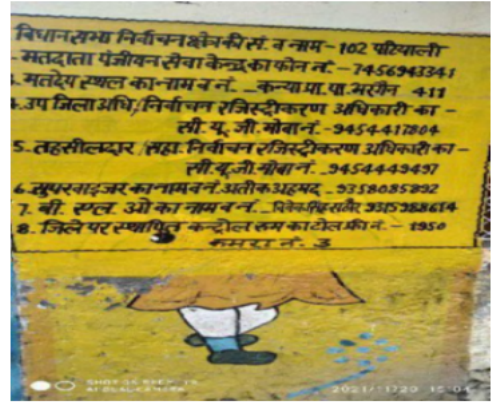 विधान सभा निर्वाचन क्षेत्र की सं. व नाम - 102 पटियाली
मतदाता पंजीयन सेवा केन्द्र का फोन नं. - 7456943341
मतदेय स्थल का नाम व नं. - कन्या.प्रा.पा. भरगैन 411
उप जिला अधि./निर्वाचन रजिस्ट्रीकरण अधिकारी का -
सी.यू.जी.मोबा नं. - 9454417804
5. तहसीलदार/सहा. निर्वाचन रजिस्ट्रीकरण अधिकारी का -
सी.यू.जी.मोबा नं. - 9454449497
6. सुपरवाइजर का नाम व नं. अतीक अहमद - 9358085892
7. बी. एल. ओ का नाम व नं. - 9315988614
8. जिले पर स्थापित कन्ट्रोल रूम का टोल फ्री नं. - 1950
कमरा नं. 3
2021/11/20 15:04